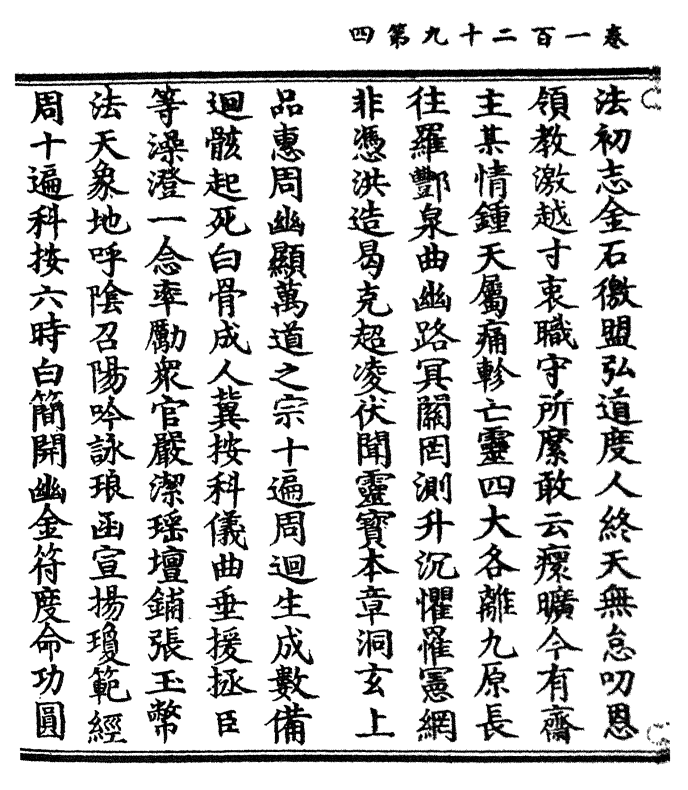 卷一百二十九第四
法初志金石徼盟弘道度人終天無怠叨恩
領教激越寸衷職守所縻敢云瘝曠今有齋
主某情鍾天屬痛軫亡靈四大各離九原長
往羅酆泉曲幽路冥關罔測升沉懼罹憲網
非憑洪造曷克超凌伏聞靈寶本章洞玄上
品惠周幽顯萬道之宗十遍周迴生成數備
迴骸起死白骨成人冀按科儀曲垂援拯臣
等澡澄一念率勵衆官嚴潔瑶壇鋪張玉幣
法天象地呼陰召陽吟詠琅函宣揚瓊範經
周十遍科按六時白簡開幽金符度命功圓